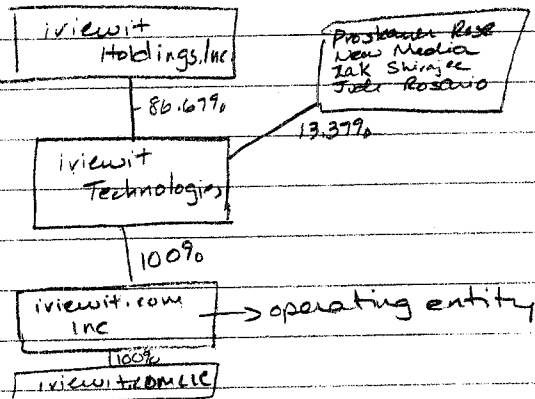 iviewit
Holdings, Inc
Proskauer Rose
New Media
Zak Shirajee
Jude Rosario
86.67%
13.37%
iviewit
Technologies
100%
iviewit.com
Inc
→ operating entity
100%
iviewit.com LLC